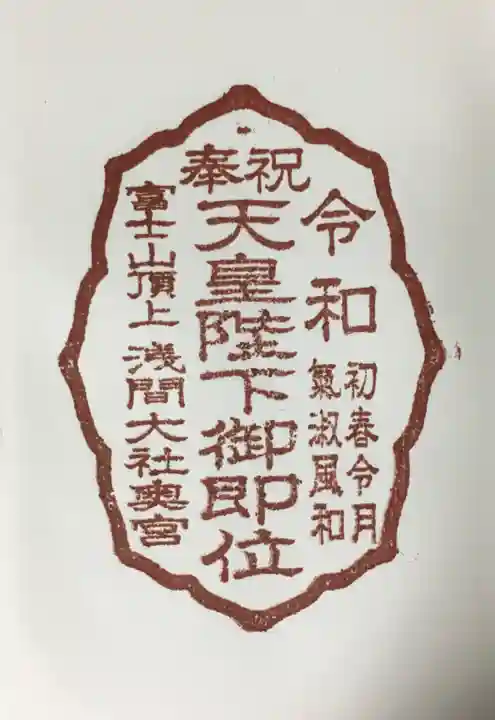 令和
初春令月
氣淑風和
奉祝
天皇陛下御即位
富士山頂上浅間大社奥宮